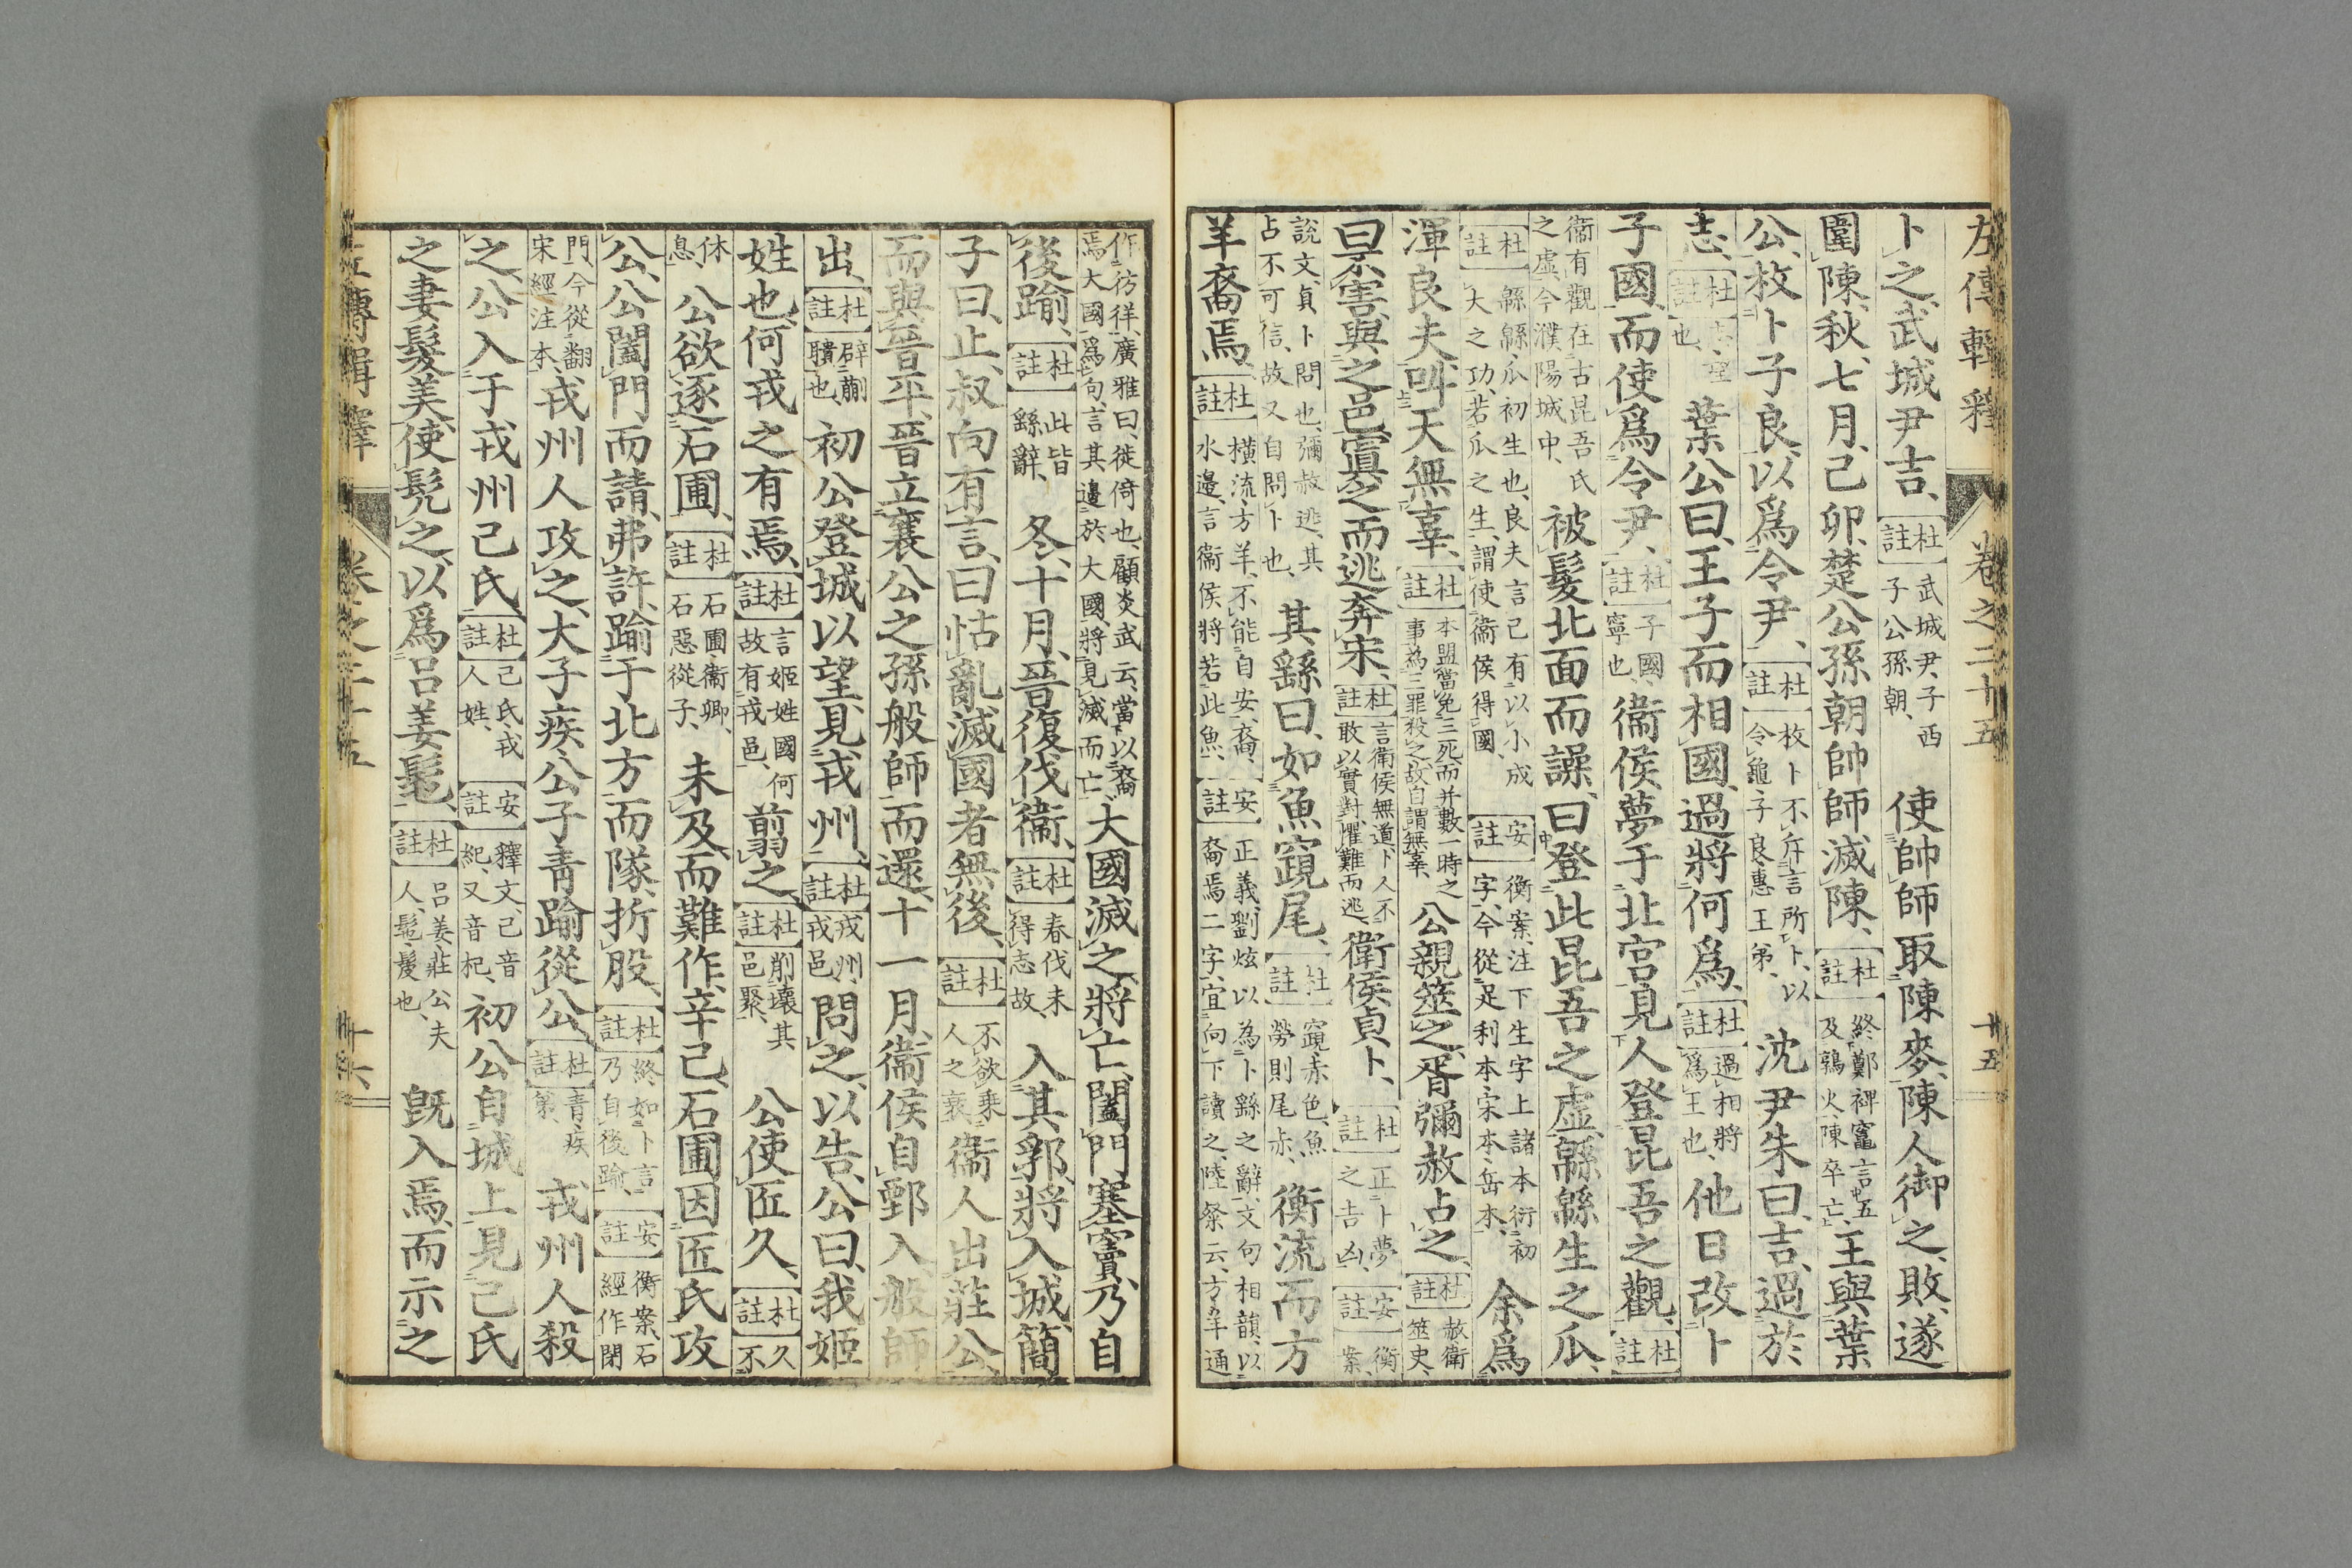 左傳輯釋 卷之二十五 十五
卜之、武城尹吉、【杜註】武城尹、子西子公孫朝、使帥師取陳麥、陳人御之、敗、遂
圍陳、秋、七月、己卯、楚公孫朝帥師滅陳、【杜註】終鄭裨竈言五及鶉火陳卒亡、王與葉
公枚卜子良、以爲令尹、【杜註】枚卜不斥言所卜、以令龜、子良、惠王弟、沈尹朱曰、吉、過於
志、【杜註】志、望也、葉公曰、王子而相國、過將何爲、【杜註】過相將爲王也、他日改卜
子國、而使爲令尹、【杜註】子國寧也、衞侯夢于北宮、見人登昆吾之觀、【杜註】
衞有觀在古昆吾氏之虛、今濮陽城中、被髮北面而譟、曰、登此昆吾之虛、緜緜生之瓜、
【杜註】緜緜瓜初生也、良夫言己有以小成大之功、若瓜之生、謂使衞侯得國、【安註】衡案、注下生字上諸本衍初字、今從足利本宋本岳本、余爲
渾良夫、叫天無辜、【杜註】本盟當免三死而并數一時之事為三罪殺之故自謂無辜、公親筮之、胥彌赦占之、【杜註】赦、衞筮史、
曰、不害、與之邑、寘之而逃奔宋、【杜註】言衞侯無道、卜人不敢以實對、懼難而逃、衞侯貞卜、【杜註】正卜夢之吉凶、【安註】衡案、
說文、貞、卜問也、彌赦逃、其占不可信、故又自問卜也、其繇曰、如魚竀尾、【杜註】竀、赤色、魚勞則尾赤、衡流而方
羊裔焉、【杜註】橫流方羊、不能自安、裔、水邊、言衞侯將若此魚、【安註】正義、劉炫以為、卜繇之辭、文句相韻、以裔焉二字、宜向下讀之、陸粲云、方羊通
作彷徉、廣雅曰、徙倚也、顧炎武云、當以裔焉大國爲句、言其邊於大國、將見滅而亡、大國滅之、將亡、闔門塞竇、乃自
後踰、【杜註】此皆繇辭、冬、十月、晉復伐衞、【杜註】春伐未得志故、入其郛、將入城、簡
子曰、止、叔向有言、曰、怙亂滅國者無後、【杜註】不欲乘人之衰、衞人出莊公、
而與晉平、晉立襄公之孫般師而還、十一月、衞侯自鄄入、般師
出、【杜註】辟蒯聵也、初公登城以望、見戎州、【杜註】戎州、戎邑、問之、以告、公曰、我姬
姓也、何戎之有焉、【杜註】言姬姓國何故有戎邑、翦之、【杜註】削壞其邑聚、公使匠久、【杜註】久不
休息、公欲逐石圃、【杜註】石圃、衞卿、石惡從子、未及而難作、辛巳、石圃因匠氏攻
公、公闔門而請、弗許、踰于北方而隊、折股、【杜註】終如卜言乃自後踰、【安註】衡案、石經作閉
門、今從翻宋經注本、戎州人攻之、大子疾、公子青踰從公、【杜註】青、疾弟、戎州人殺
之、公入于戎州己氏、【杜註】己氏、戎人姓、【安註】釋文、己音紀、又音杞、初公自城上見己氏
之妻髮美、使髡之、以爲呂姜髢、【杜註】呂姜、莊公夫人、髢、髲也、旣入焉、而示之
左傳輯釋 卷之二十五 十六